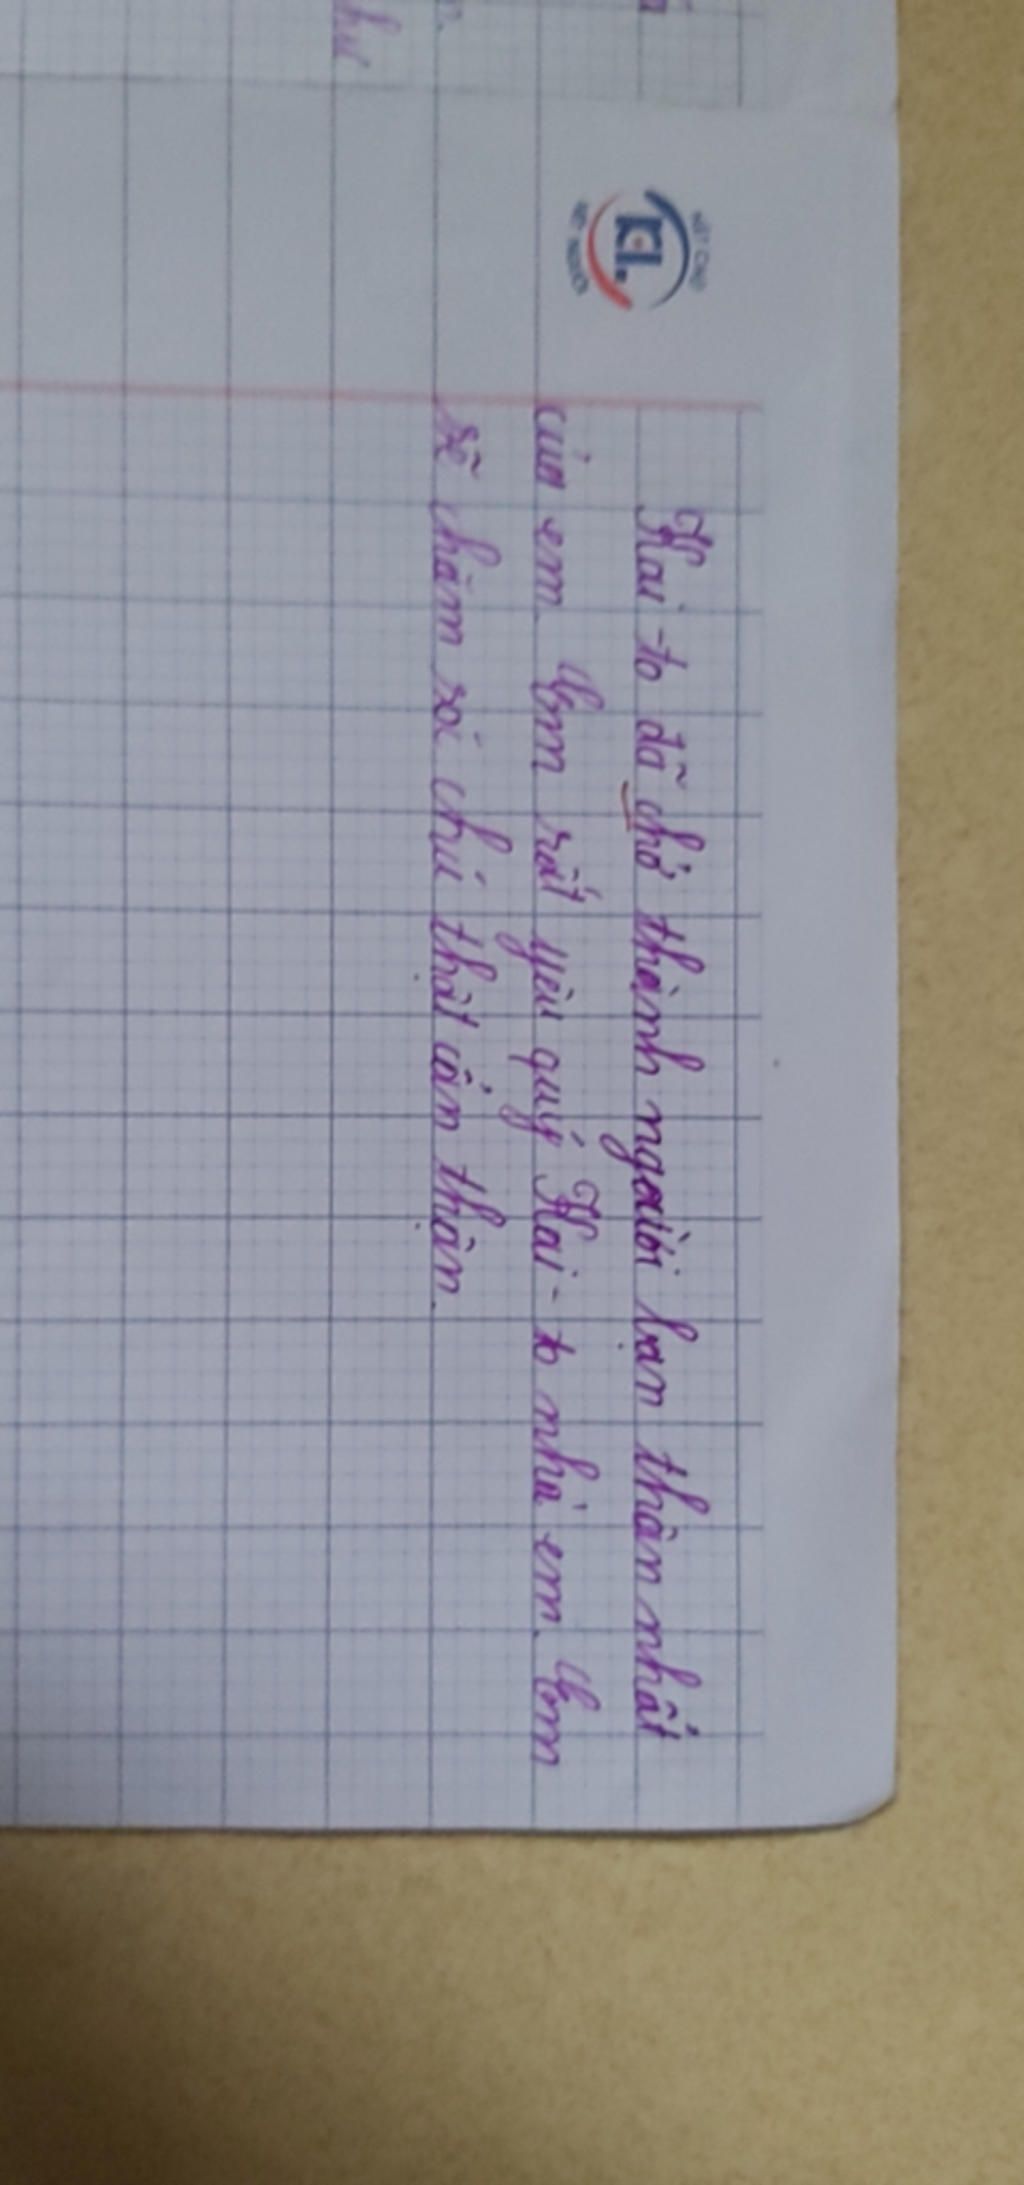 Kai-to đã chở thành người bạn thân nhất
của em. Em rất yêu quý Kai-to nhà em. Em
sẽ chăm sóc chú thật cẩn thận.